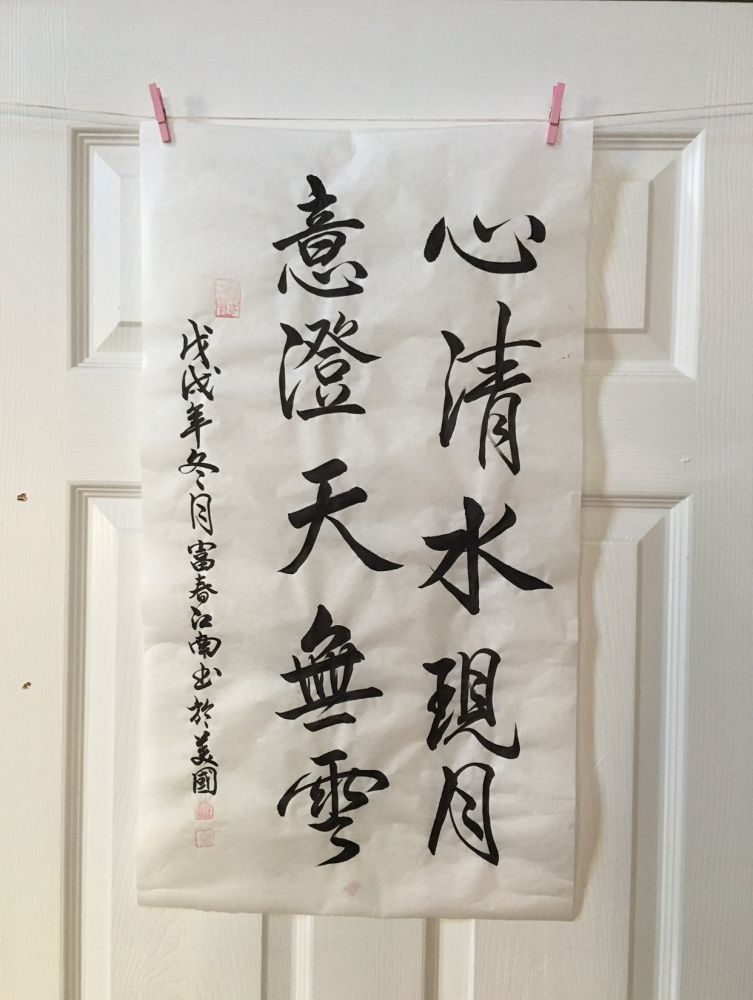 心清水現月
意澄天無雲
戊戌年冬月富春江南書於美國